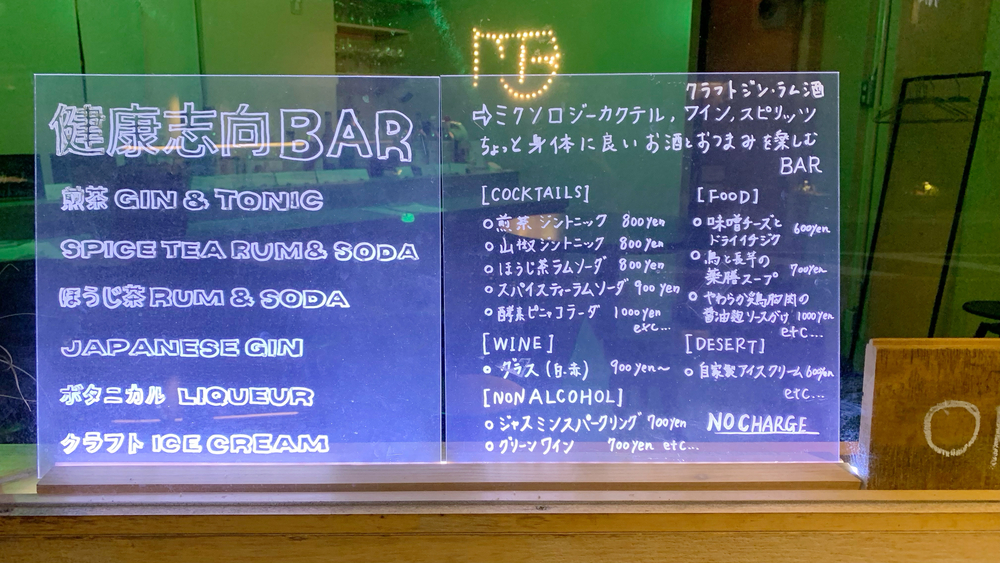 健康志向BAR
煎茶 GIN & TONIC
SPICE TEA RUM & SODA
ほうじ茶 RUM & SODA
JAPANESE GIN
ボタニカル LIQUEUR
クラフト ICE CREAM
クラフトジン・ラム酒
⇨ミクソロジーカクテル, ワイン, スピリッツ
ちょっと身体に良いお酒とおつまみを楽しむ
BAR
[COCKTAILS]
○煎茶 ジントニック 800yen
○山椒 ジントニック 800yen
○ほうじ茶ラムソーダ 800yen
○スパイスティーラムソーダ 900yen
○酵素ピニャコラーダ 1000yen
exc...
[WINE]
○グラス (白・赤) 900yen~
[NON ALCOHOL]
○ジャスミンスパークリング 700yen
○グリーンワイン 700yen etc...
[FOOD]
○味噌チーズと
ドライイチジク 600yen
○鳥と長芋の
薬膳スープ 700yen
○やわらか鶏胸肉の
醤油麹ソースがけ 1000yen
etc...
[DESERT]
○自家製アイスクリーム 600yen
etc...
NO CHARGE